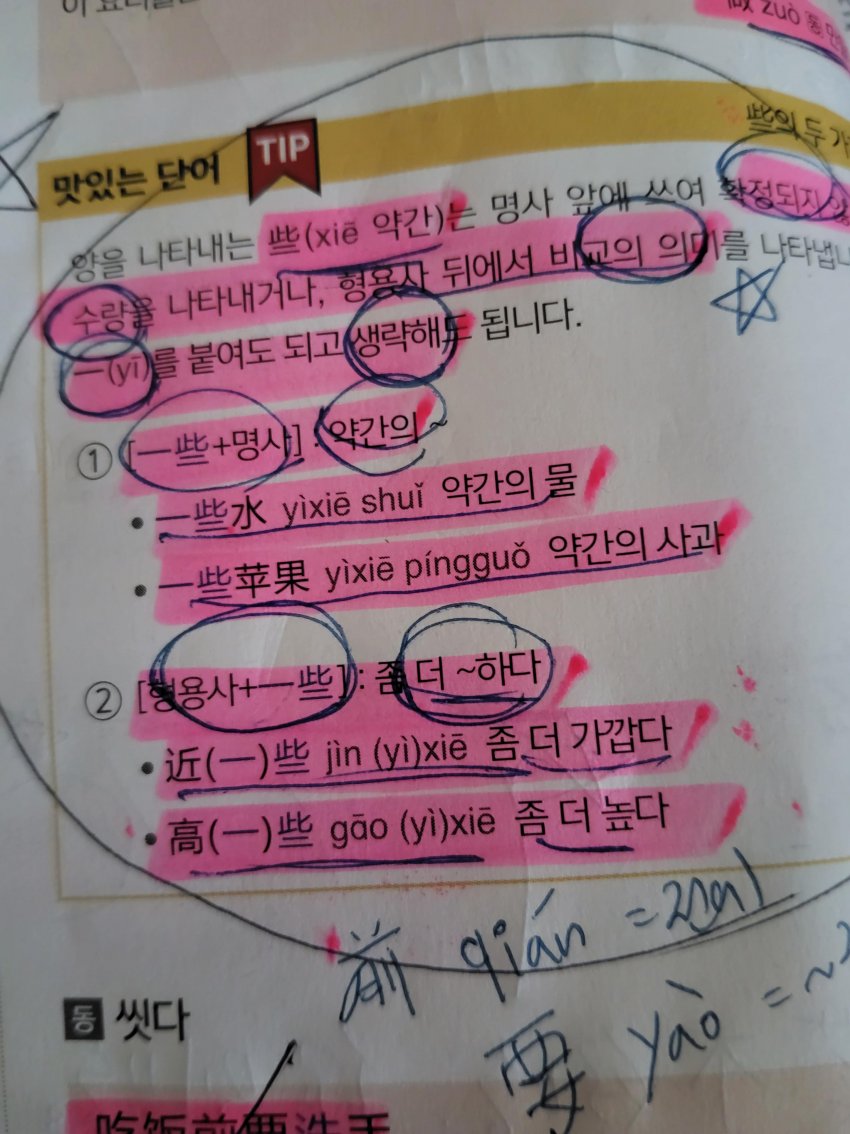 zuò 동
맛있는 단어 TIP 些의 두 가
양을 나타내는 些(xiē 약간)는 명사 앞에 쓰여 확정되지 않
수량을 나타내거나, 형용사 뒤에서 비교의 의미를 나타냅니
一(yī)를 붙여도 되고 생략해도 됩니다.
① [一些+명사] : 약간의 ~
• 一些水 yìxiē shuǐ 약간의 물
• 一些苹果 yìxiē píngguǒ 약간의 사과
② [형용사+一些] : 좀 더 ~하다
• 近(一)些 jìn (yì)xiē 좀 더 가깝다
• 高(一)些 gāo (yì)xiē 좀 더 높다
前 qián =
要 yào = ~
동 씻다
吃饭前要洗手